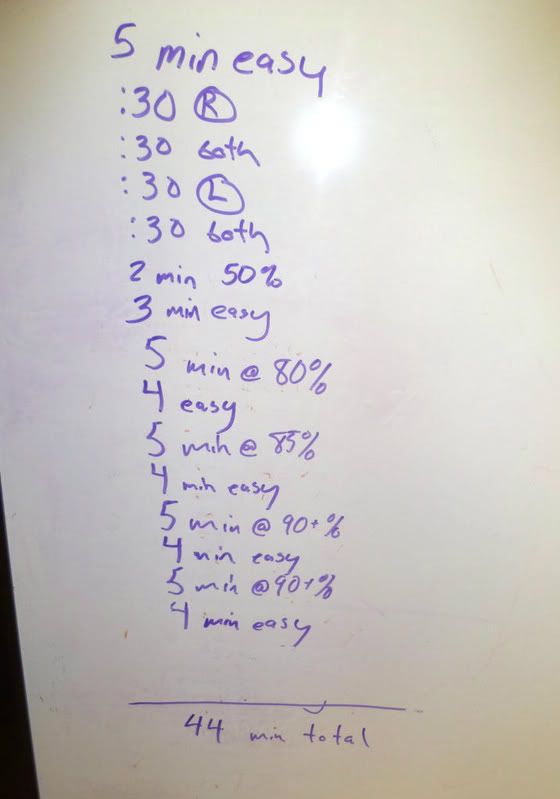 5 min easy
:30 R
:30 both
:30 L
:30 both
2 min 50%
3 min easy
5 min @ 80%
4 easy
5 min @ 85%
4 min easy
5 min @ 90+%
4 min easy
5 min @ 90+%
4 min easy
44 min total